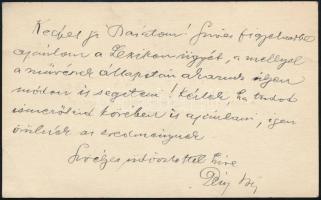 Kedves jó Barátom! Szíves figyelmedbe
ajánlom a Lexikon ügyét, a mellyel
a művészek állapotán akarunk ilyen
módon is segíteni! Kérlek, ha tudod
ismerőseid körében is ajánlani, igen
örülnék az eredménynek
Szívélyes üdvözlettel híve